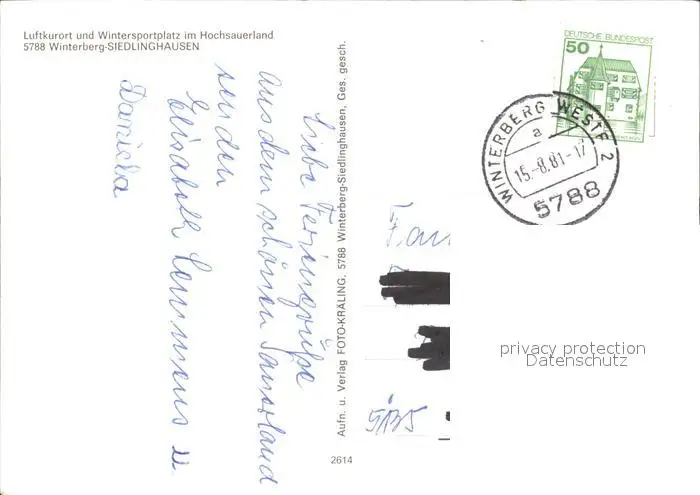 Luftkurort und Wintersportplatz im Hochsauerland
5788 Winterberg-SIEDLINGHAUSEN
Liebe Feriengrüße
aus dem schönen Sauerland
senden
Elisabeth Lemmens u
Daniela
Aufn. u. Verlag FOTO-KRÄLING, 5788 Winterberg-Siedlinghausen, Ges. gesch.
2614
DEUTSCHE BUNDESPOST
50
WINTERBERG WESTF 2
a
15.-8.81-17
5788
Fam
5135
privacy protection
Datenschutz